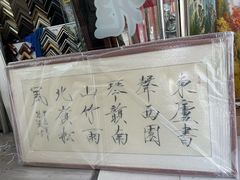 東廬書
聲西園
琴韻南
山竹雨
北嶺松
風